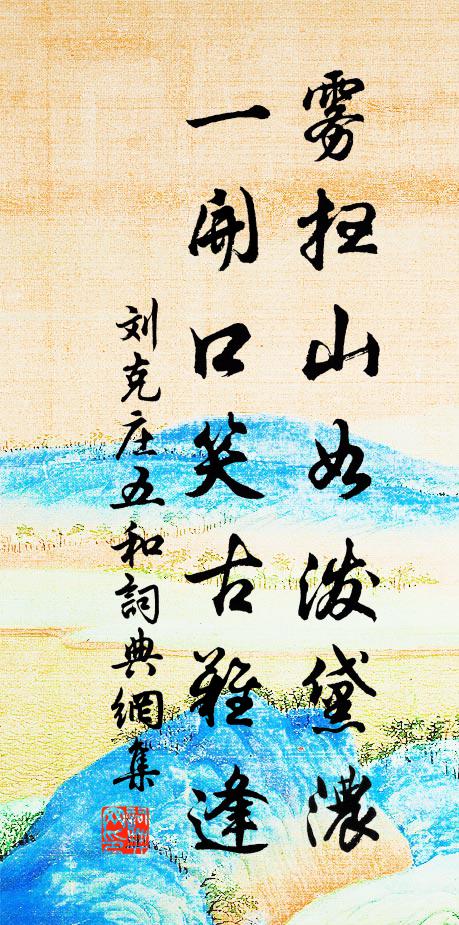 雾扫山如泼黛浓
一開口笑古難逢
刘克庄五和詞典網集